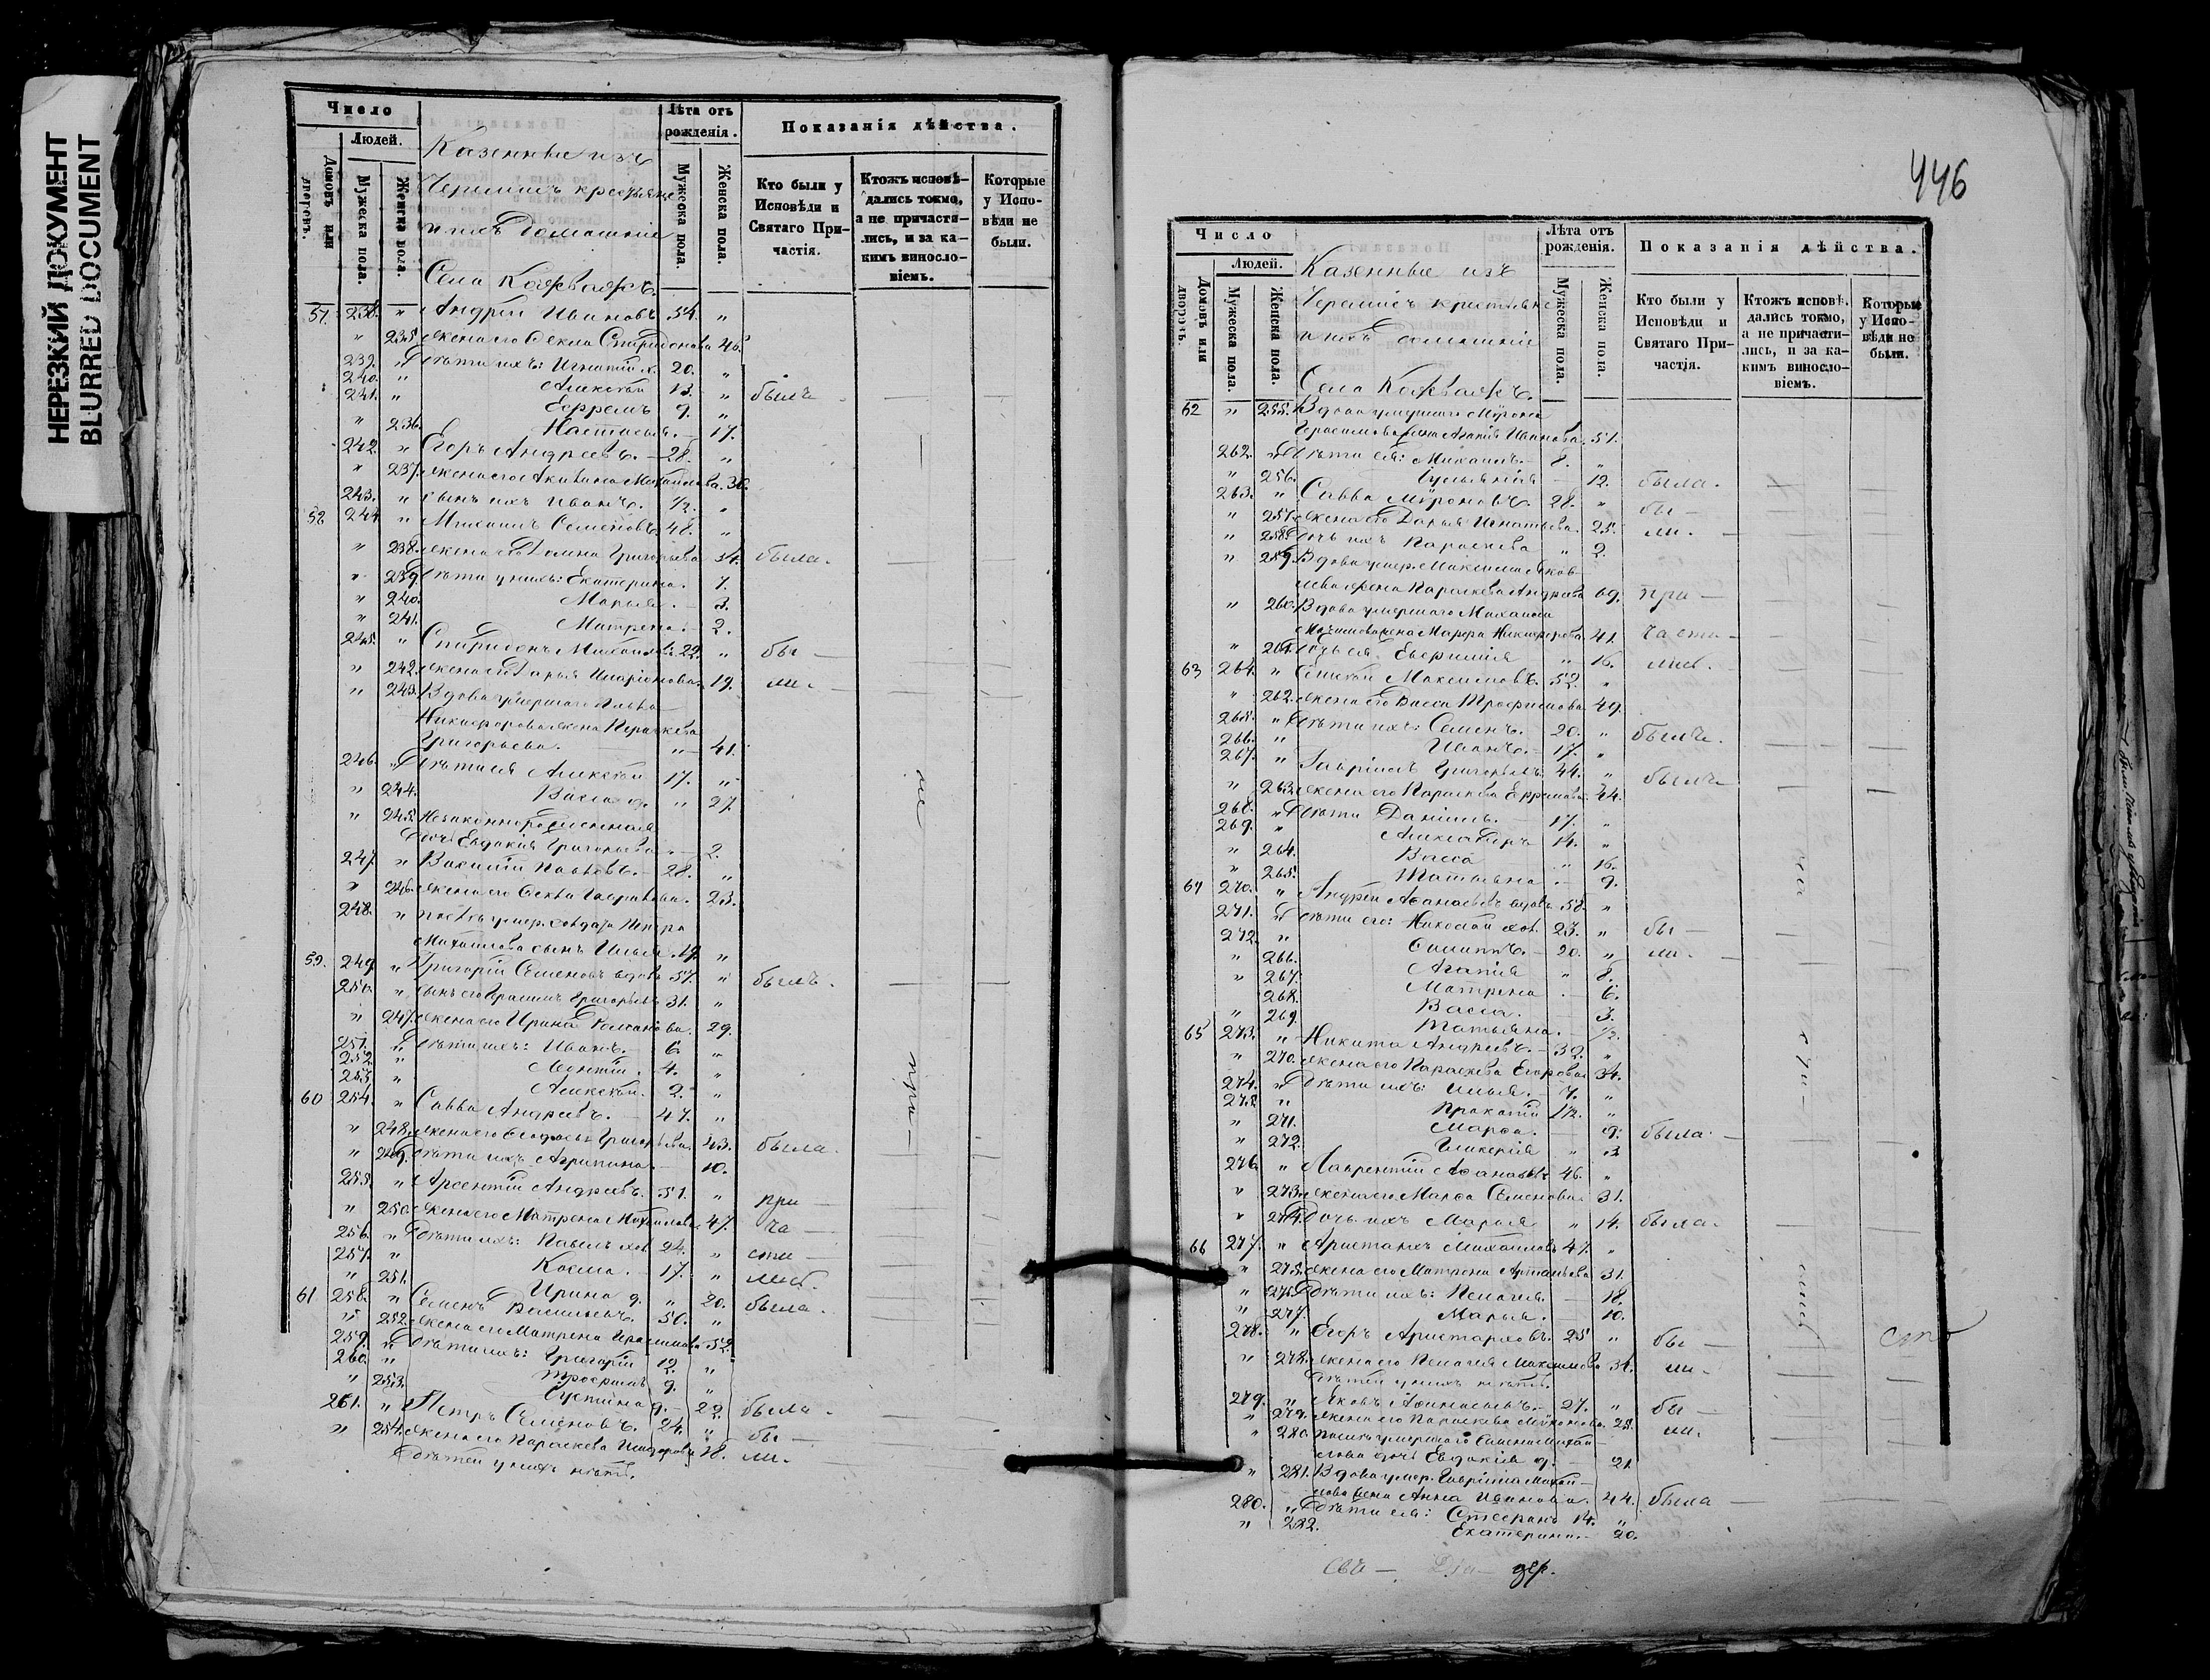 НЕРЕЗКИЙ ДОКУМЕНТ
BLURRED DOCUMENT
Число
Людей.
Домовъ или дворовъ.
Мужеска пола.
Женска пола.
Казенные изъ
Черемисъ крестьяне
и ихъ Домашніе
Села
Лѣта отъ рожденія.
Мужеска пола.
Женска пола.
Показанія дѣйства.
Кто были у Исповѣди и Святаго Причастія.
Ктожъ исповѣдались токмо, а не причастились, и за какимъ винословіемъ.
Которые у Исповѣди не были.
57. 238. " Андрей Ивановъ. 54. "
" 235. Жена его Ѳекла Спиридонова 46.
239. " Дѣти ихъ: Игнатій х. 20. "
240. " Алексѣй 13. " былъ
241. " Ефремъ 9. "
" 236. Настасья. 17.
242. " Егоръ Андреевъ. 28. "
" 237. Жена его Акилина Михайлова. 30.
243. " Сынъ ихъ Иванъ. 1/2. "
58 244 " Михаилъ Семеновъ 48. "
" 238. Жена его Домна Григорьева 54. была.
" 239. Дѣти у нихъ: Екатерина. 7.
" 240. Марья. 3.
" 241. Матрена. 2.
245. " Спиридонъ Михайловъ 22. " бы
" 242. Жена его Дарья Иларіонова. 19. ли.
" 243. Вдова умершаго Павла
Никифорова жена Параскева
Григорьева. " 41.
246. " Дѣти ея Алексѣй 17. "
" 244. Васса д. " 27.
" 245. Незаконнорожденная
дочь Евдокія Григорьева " 2.
247. " Василій Павловъ. 28. "
" 246. Жена его Ѳекла Гаврилова. 23.
248. " Послѣ умер. солдата Петра
Михайлова сынъ Илья 19. "
59. 249. " Григорій Семеновъ вдовъ 57. " былъ.
250. " Сынъ его Герасимъ Григорьевъ 31. "
" 247. Жена его Ирина Романова. 29.
251. " Дѣти ихъ: Иванъ. 6. "
252. " Леонтій. 4. "
253. " Алексѣй. 2. "
60 254. " Савва Андреевъ. 47. "
" 248. Жена его Ѳеодосья Григорьева 43. была.
" 249. Дѣти ихъ Агрипина. 10.
255. " Арсентій Андреевъ. 51. " при
" 250. Жена его Матрена Михайлова 47. ча
256. " Дѣти ихъ: Павелъ хол. 24. " сти
257. " Косма. 17. " лись.
" 251. Ирина д. " 20. была.
61 258. " Семенъ Васильевъ. 50. "
" 252. Жена его Матрена Герасимова 52.
259. " Дѣти ихъ: Григорій 12. "
260. " Трофимъ 9. "
" 253. Устина д. 22. была.
261. " Петръ Семеновъ. 24. " бы
" 254. Жена его Параскева Исидорова 18. ли.
Дѣтей у нихъ нѣтъ.
не
при
446
Число
Людей.
Домовъ или дворовъ.
Мужеска пола.
Женска пола.
Казенные изъ
Черемисъ крестьяне
и ихъ домашніе
Села
Лѣта отъ рожденія.
Мужеска пола.
Женска пола.
Показанія дѣйства.
Кто были у Исповѣди и Святаго Причастія.
Ктожъ исповѣдались токмо, а не причастились, и за какимъ винословіемъ.
Которые у Исповѣди не были.
62 " 255. Вдова умершаго Мѵрона
Герасимова жена Агапія Иванова. 51.
262. " Дѣти ея: Михаилъ. 8. "
" 256. Іуліанія 12. была.
263. " Савва Мѵроновъ. 28. " бы
" 257. Жена его Дарья Игнатьева. 25. ли.
" 258. Дочь ихъ Параскева " 2.
" 259. Вдова умер. Максима Яков
лева жена Параскева Андреева 69. при
" 260. Вдова умершаго Михаила
Максимова жена Марѳа Никифорова 41. части
" 261. Дочь ея Евфимія " 16. лись.
63 264. " Алексѣй Максимовъ. 52. "
" 262. Жена его Васса Трофимова 49.
265. " Дѣти ихъ: Семенъ. 20. "
266. " Иванъ. 17. " были.
267. " Гавріилъ Григорьевъ 44. "
" 263. Жена его Параскева Ефремова. 44. были
268. " Дѣти Даніилъ. 17. "
269. " Александръ 14. "
" 264. Васса " 16.
" 265. Татьяна 9.
64 270. " Андрей Аѳанасьевъ вдовъ 58. "
271. " Дѣти его: Николай хол. 23. " бы
272. " Филиппъ. 20. " ли.
" 266. Агапія " 8.
" 267. Матрена 6.
268. Васса. 3.
" 269. Татьяна. 1/2.
65 273. " Никита Андреевъ. 32. "
" 270. Жена его Параскева Егорова 34.
274. " Дѣти ихъ: Илья. 7. "
275. " Прокопій 1/2. "
" 271. Марѳа. 9. была
" 272. Гликерія " 3
276. " Лаврентій Аѳанасьевъ 46. "
" 273. Жена его Марѳа Семенова 31.
" 274. Дочь ихъ Марья " 14. была.
66 277. " Аристархъ Михайловъ 47. "
" 275. Жена его Матрена Артемьева 51.
" 276. Дѣти ихъ: Пелагія. 18.
" 277. Марья. 10.
278. " Егоръ Аристарховъ. 25 " бы
" 278. Жена его Пелагія Максимова 34. ли.
Дѣтей у нихъ нѣтъ.
279. " Яковъ Аѳанасьевъ. 27. " бы
" 279. Жена его Параскева Мѵронова. 28. ли.
" 280. Послѣ умершаго Семена Михай
лова дочь Евдокія д. 21
" 281. Вдова умер. Гавріила Михай
лова жена Анна Иванова. 44. была
280. " Дѣти ея: Стефанъ 14. "
" 282. Екатерина. 20.
сти
лись